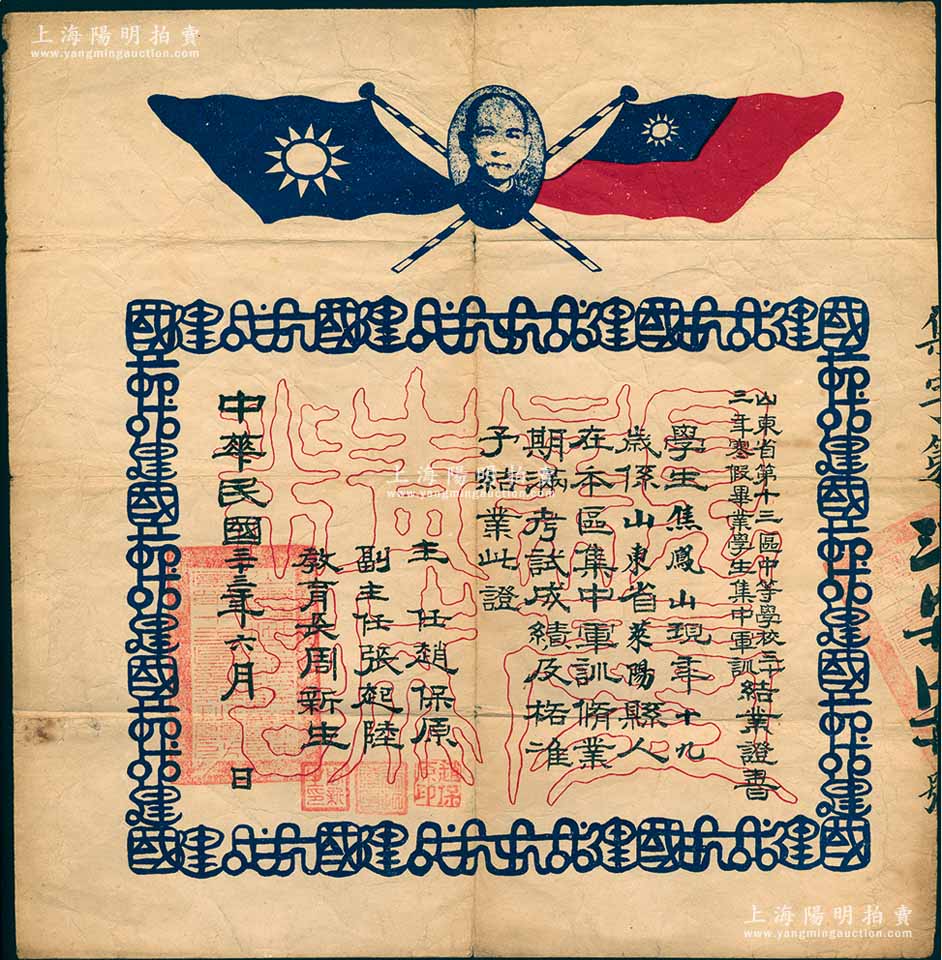 上海陽明拍賣
www.yangmingauction.com
山東省第十三區中等學校三十
三年寒假畢業學生集中軍訓結業證書
學生焦鳳山現年十九
歲係山東省萊陽縣人
在本區集中軍訓脩業
期滿考試成績及格准
予結業此證
主任趙保原
副主任張起陸
教育長周新生
中華民國三十三年六月 日
趙保原印
集字第
號
上海陽明拍賣
www.yangmingauction.com
上海陽明拍賣
www.yangmingauction.com